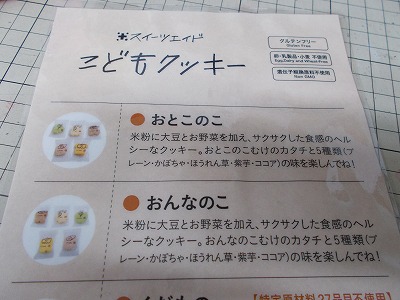 スイーツエイド
こどもクッキー
グルテンフリー
Gluten Free
卵・乳製品・小麦 不使用
Egg,Dairy and Wheat-Free
遺伝子組換原料不使用
Non GMO
おとこのこ
米粉に大豆とお野菜を加え、サクサクした食感のヘル
シーなクッキー。おとこのこむけのカタチと5種類(プ
レーン・かぼちゃ・ほうれん草・紫芋・ココア)の味を楽しんでね!
おんなのこ
米粉に大豆とお野菜を加え、サクサクした食感のヘル
シーなクッキー。おんなのこむけのカタチと5種類(プ
レーン・かぼちゃ・ほうれん草・紫芋・ココア)の味を楽しんでね!
くだもの
【特定原材料27品目不使用】